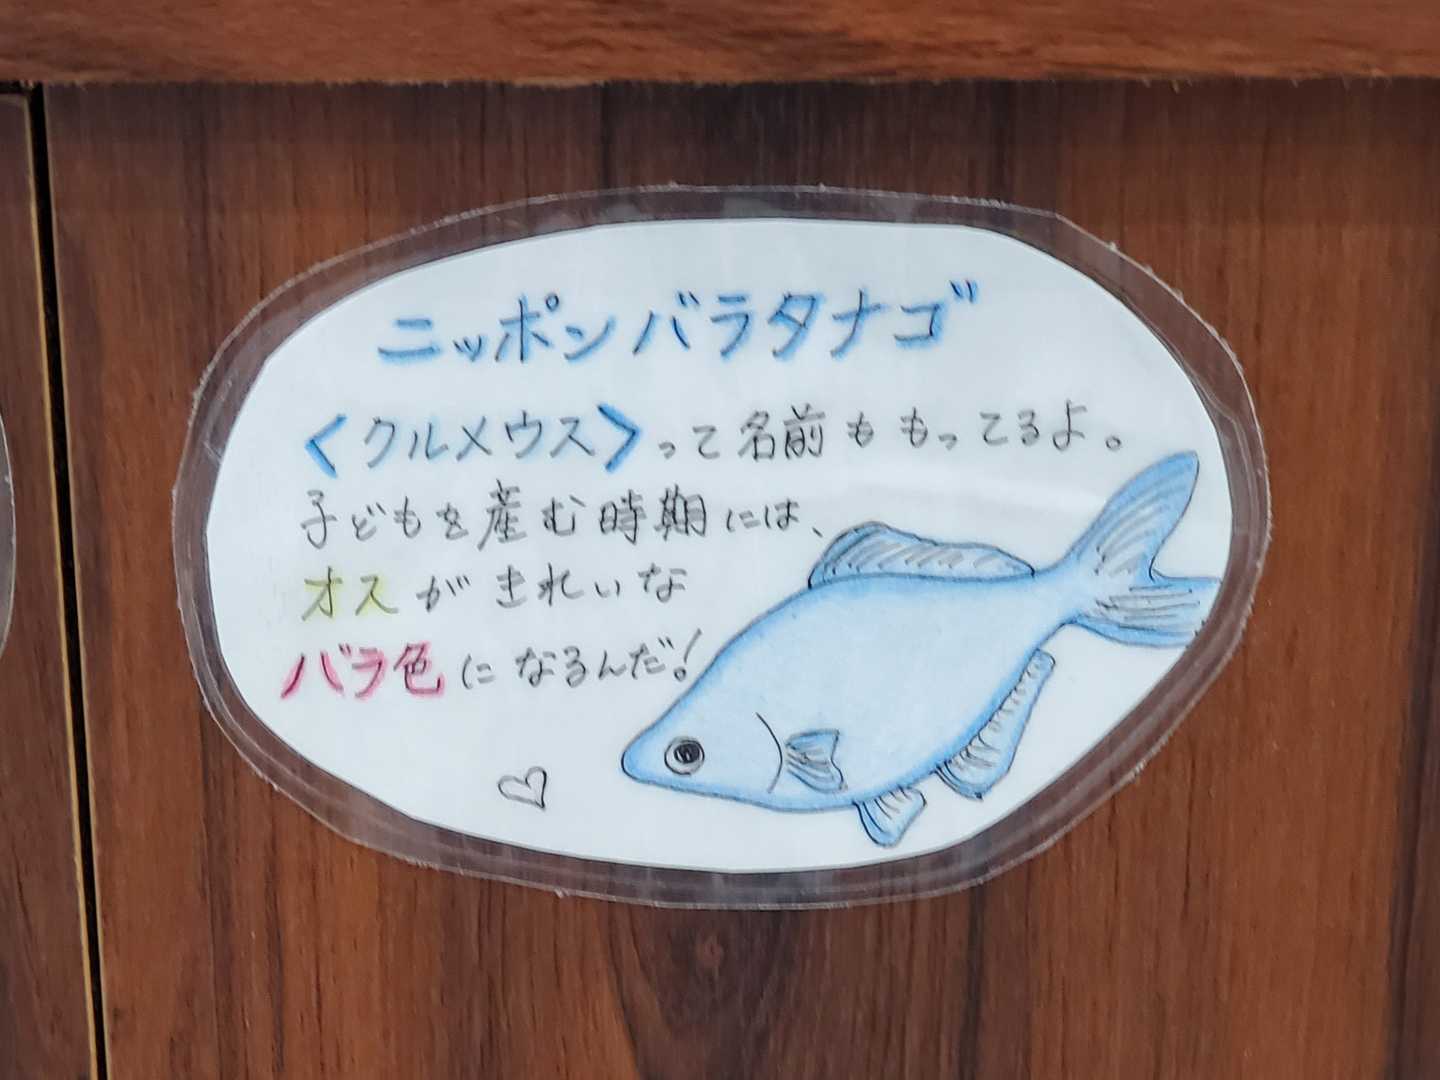 ニッポンバラタナゴ
〈クルメウス〉って名前ももってるよ。
子どもを産む時期には、
オスがきれいな
バラ色になるんだ!